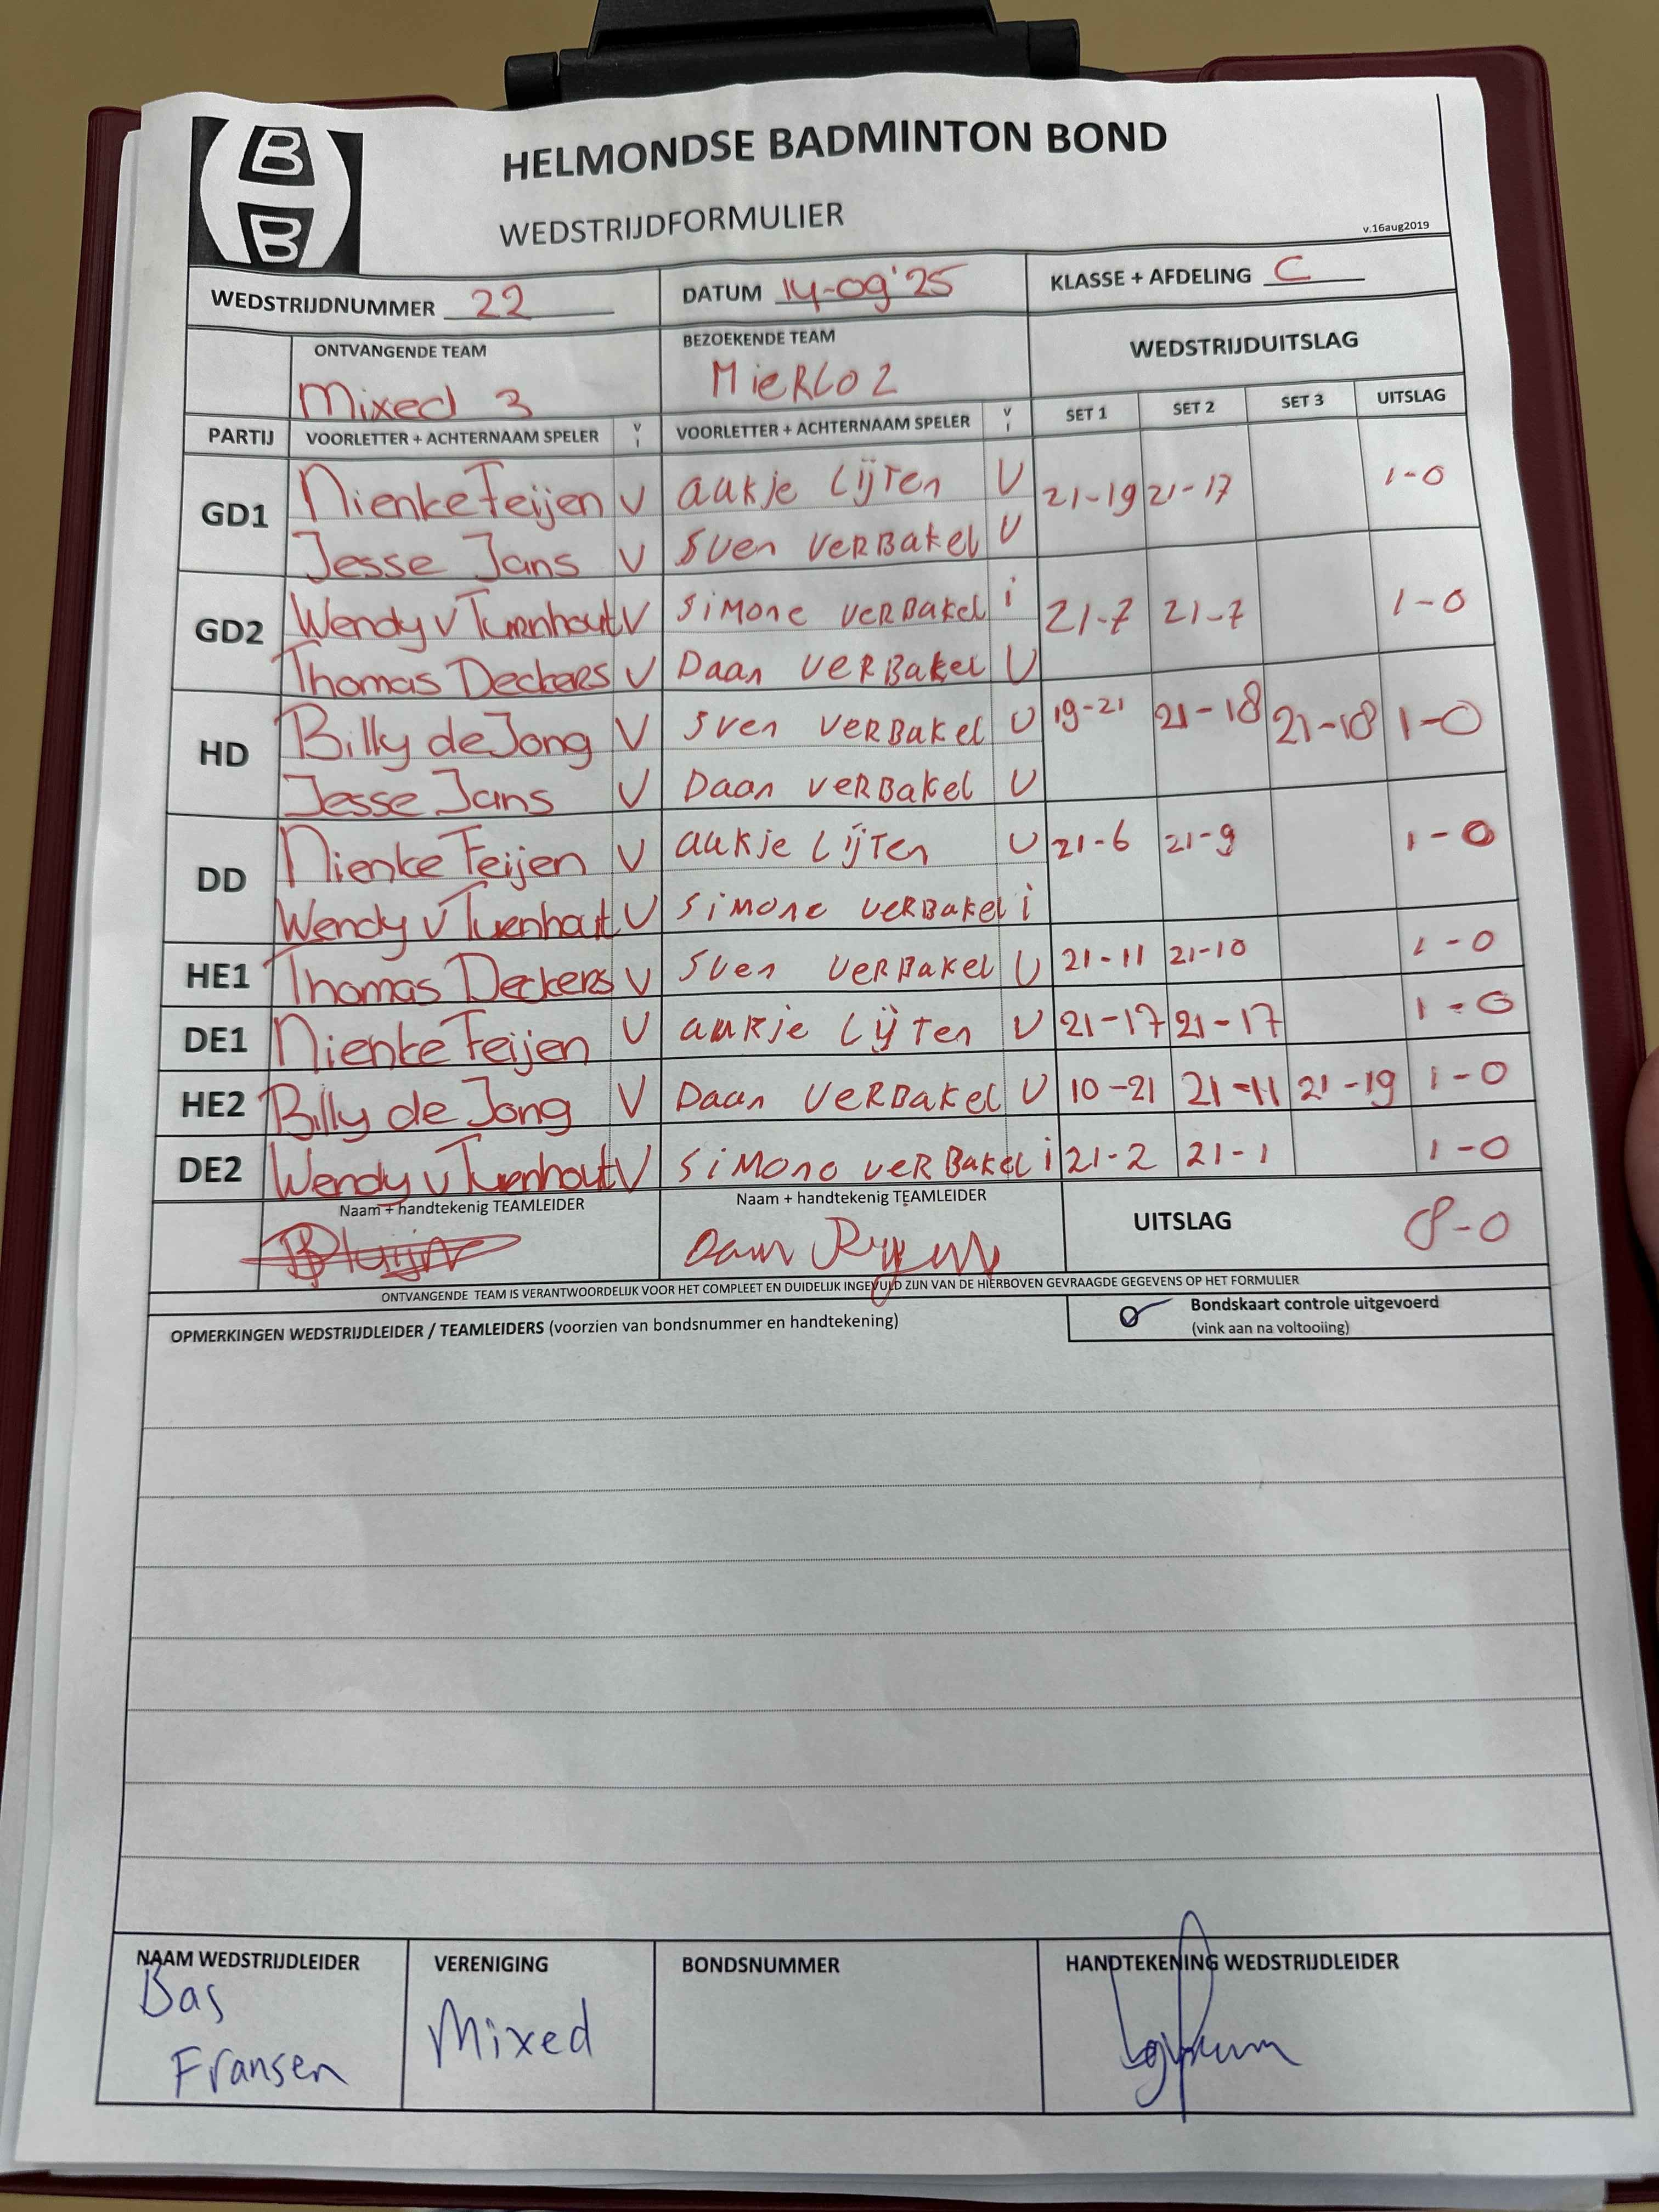 B
B
HELMONDSE BADMINTON BOND
WEDSTRIJDFORMULIER
v.16aug2019
WEDSTRIJDNUMMER 22 DATUM 14-09'25 KLASSE + AFDELING C
ONTVANGENDE TEAM BEZOEKENDE TEAM WEDSTRIJDUITSLAG
Mixed 3 MieRLO 2
PARTIJ VOORLETTER + ACHTERNAAM SPELER V I VOORLETTER + ACHTERNAAM SPELER V I SET 1 SET 2 SET 3 UITSLAG
GD1 Nienke Feijen V aukje Lijten V 21-19 21-17 1-0
Jesse Jans V Sven VerBakel V
GD2 Wendy v Turnhout V Simone VerBakel i 21-7 21-7 1-0
Thomas Deckers V Daan VerBakel V
HD Billy de Jong V Sven VerBakel V 19-21 21-18 21-18 1-0
Jesse Jans V Daan VerBakel V
DD Nienke Feijen V aukje Lijten V 21-6 21-9 1-0
Wendy v Turnhout V Simone VerBakel i
HE1 Thomas Deckers V Sven VerBakel V 21-11 21-10 1-0
DE1 Nienke Feijen V aukje Lijten V 21-17 21-17 1-0
HE2 Billy de Jong V Daan VerBakel V 10-21 21-11 21-19 1-0
DE2 Wendy v Turnhout V Simone VerBakel i 21-2 21-1 1-0
Naam + handtekenig TEAMLEIDER Naam + handtekenig TEAMLEIDER UITSLAG 8-0
ONTVANGENDE TEAM IS VERANTWOORDELIJK VOOR HET COMPLEET EN DUIDELIJK INGEVULD ZIJN VAN DE HIERBOVEN GEVRAAGDE GEGEVENS OP HET FORMULIER
OPMERKINGEN WEDSTRIJDLEIDER / TEAMLEIDERS (voorzien van bondsnummer en handtekening) Bondskaart controle uitgevoerd
(vink aan na voltooiing)
NAAM WEDSTRIJDLEIDER VERENIGING BONDSNUMMER HANDTEKENING WEDSTRIJDLEIDER
Bas
Fransen Mixed